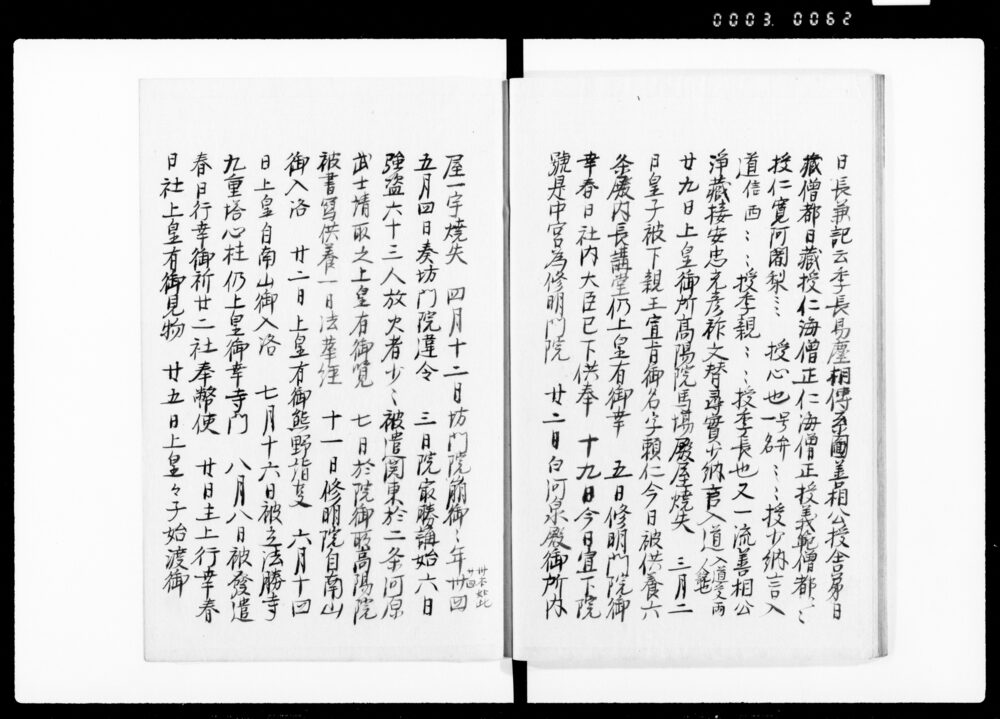 0003.0062
日長兼記云季長易筮相傳系圖善相公授舍弟日
藏僧都日藏授仁海僧正仁海僧正授義範僧都〻
授仁寛阿闍梨〻〻 授心也一号 〻〻授少納言入
道信西〻〻授季親〻〻授季長也又一流善相公
淨藏授安忠充彦祚文替尋實少納言入道
廿九日上皇御所高陽院馬場殿屋焼失 三月二
日皇子被下親王宣旨御名字頼仁今日被供養六
条殿内長講堂仍上皇有御幸 五日修明門院御
幸春日社内大臣已下供奉 十九日今日宣下院
號是中宮為修明門院 廿二日白河泉殿御所内
屋一宇焼失 四月十二日坊門院崩御〻年卅四
廿四
本如此
五月四日奏坊門院違令 三日院最勝講始六日
強盗六十三人放火者少〻被遣関東於二条河原
武士請取之上皇有御覧 七日於院御所高陽院
被書寫供養一日法華経 十一日修明院自南山
御入洛 廿二日上皇有御熊野詣 六月十四
日上皇自南山御入洛 七月十六日被立法勝寺
九重塔心柱仍上皇御幸寺門 八月八日被發遣
春日行幸御祈廿二社奉幣使 廿日主上行幸春
日社上皇有御見物 廿五日上皇々子始渡御